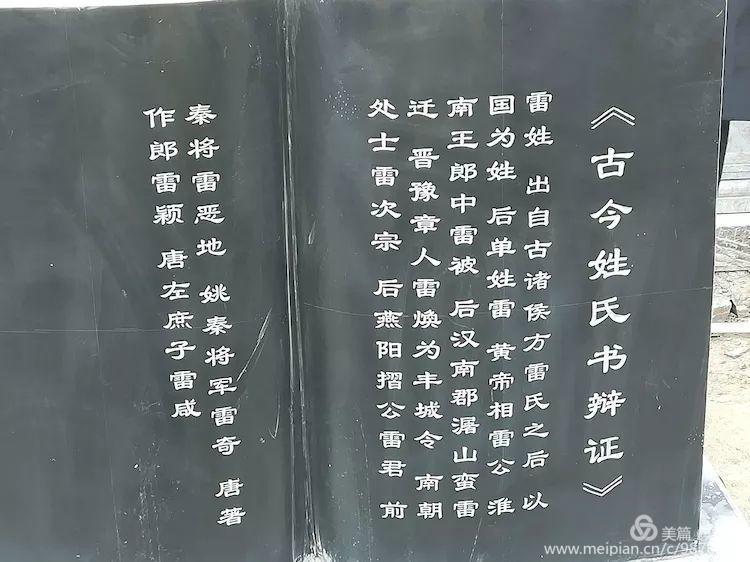 《古今姓氏书辩证》
雷姓 出自古诸侯方雷氏之后 以
国为姓 后单姓雷 黄帝相雷公 淮
南王郎中雷被 后汉南郡潺山蛮雷
迁 晋豫章人雷焕为丰城令 南朝
处士雷次宗 后燕阳摺公雷君 前
秦将雷恶地 姚秦将军雷奇 唐著
作郎雷颖 唐左庶子雷咸
美篇
www.meipian.cn/c/98